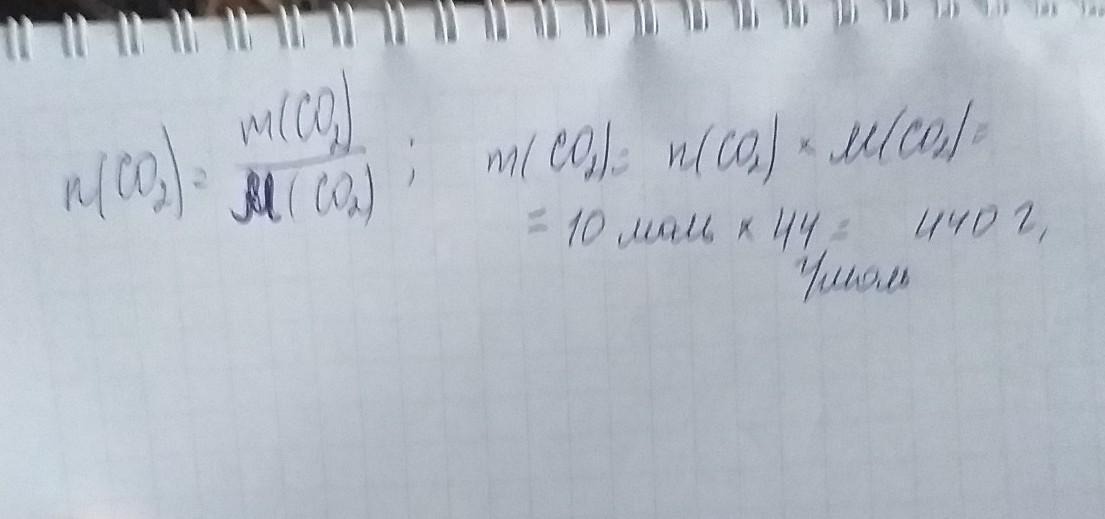 n(CO₂) = m(CO₂) / M(CO₂) ; m(CO₂) = n(CO₂) × M(CO₂) =
= 10 моль × 44 = 440 г,
г/моль